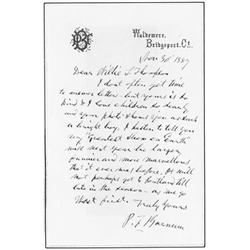 Waldemere,
Bridgeport, Ct.
1887
Dear Willie
I don't often get time
to answer letters but yours is so
kind & I love children so dearly
and your photo shows you
a bright boy, I hasten to tell you
my "Greatest Show on Earth"
will next year be larger
funnier and more marvellous
that it ever was before, &
not perhaps get to
late in the season - as we go
West first. Truly Yours
P. T. Barnum